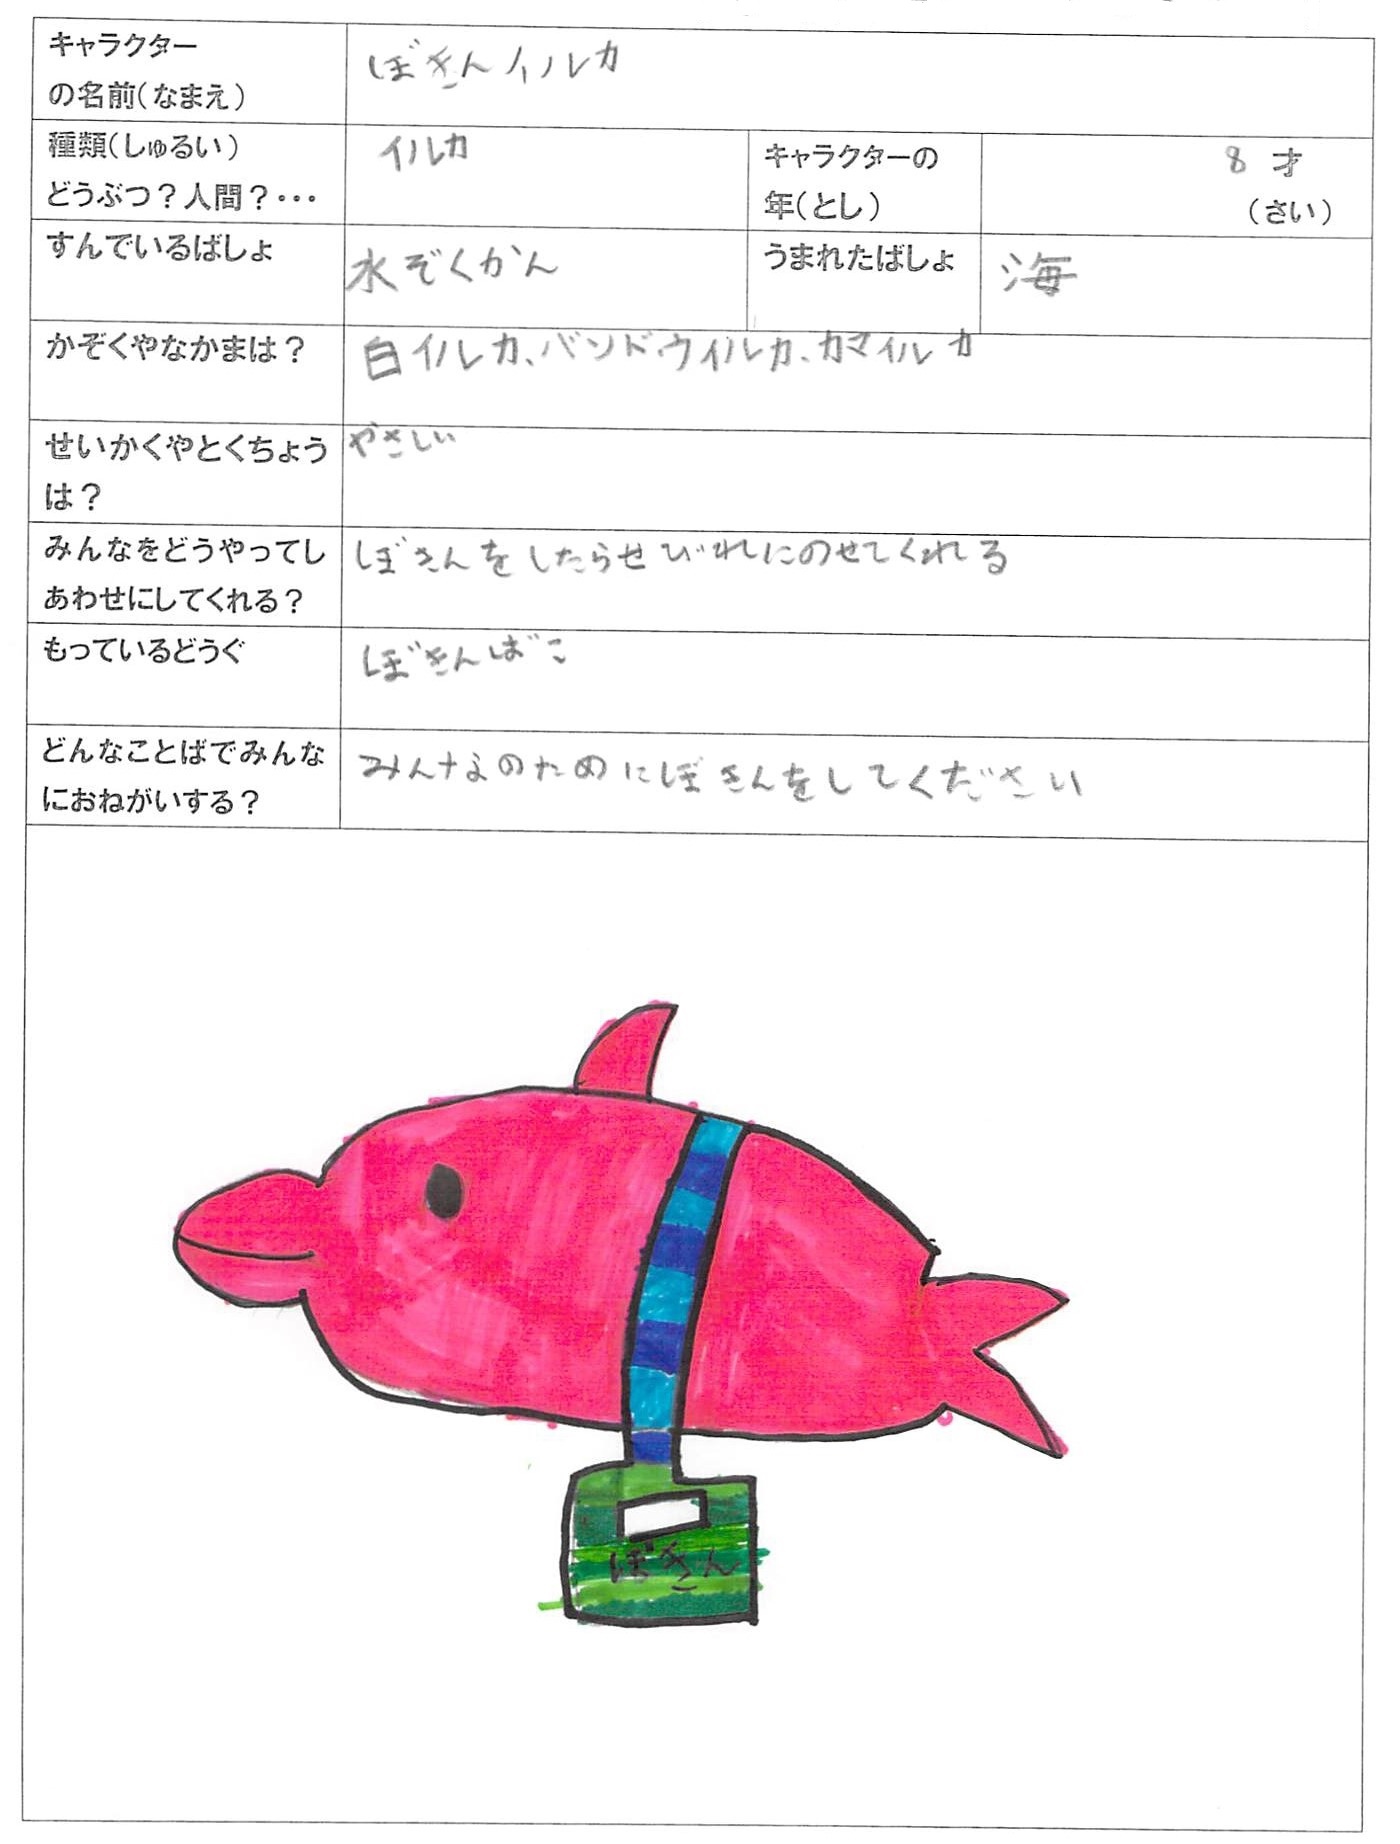 キャラクター
の名前(なまえ)
ぼきんイルカ
種類(しゅるい)
どうぶつ?人間?・・・
イルカ
キャラクターの
年(とし)
8 才
(さい)
すんでいるばしょ
水ぞくかん
うまれたばしょ
海
かぞくやなかまは?
白イルカ、バンドウイルカ、カマイルカ
せいかくやとくちょう
は?
やさしい
みんなをどうやってし
あわせにしてくれる?
ぼきんをしたらせびれにのせてくれる
もっているどうぐ
ぼきんばこ
どんなことばでみんな
におねがいする?
みんなのためにぼきんをしてください
ぼきん